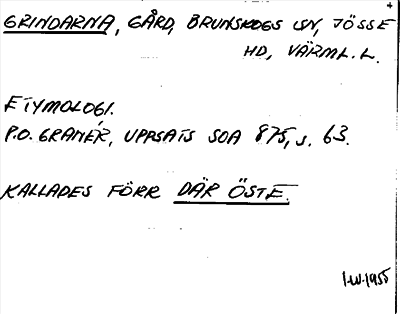 GRINDARNA, GÅRD, BRUNSKOGS SN, JÖSSE
HD, VÄRML. L.
ETYMOLOGI.
P.O. GRANÉR, UPPSATS SOA 875, s. 63.
KALLADES FÖRR DÄR ÖSTE.
1955